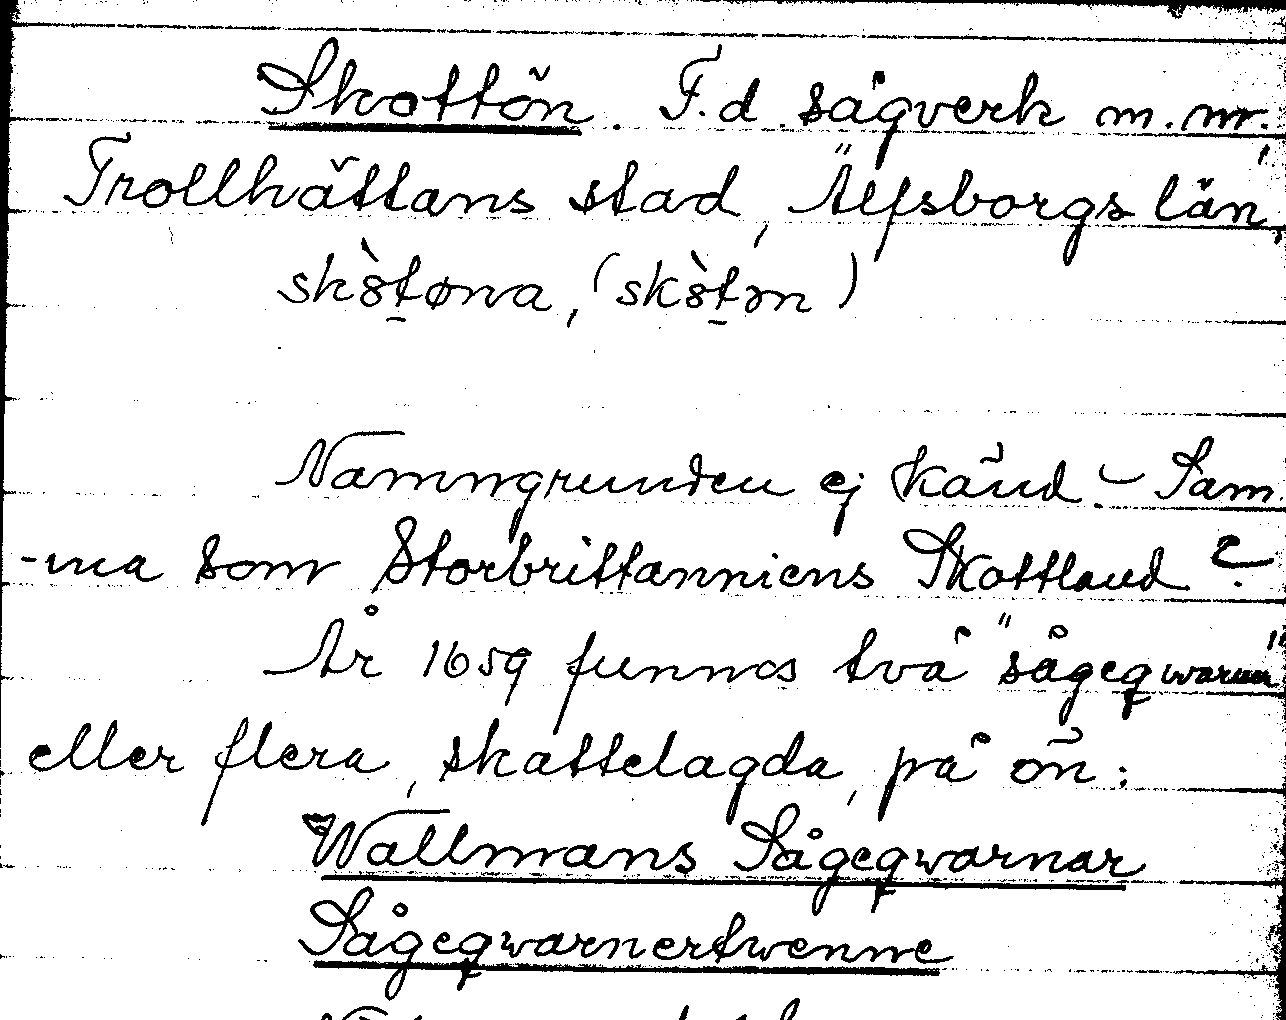 Skottön. F.d. sågverk m.m.,
Trollhättans stad, Älfsborgs län,
Namngrunden ej känd. – Sam
-ma som Storbrittanniens Skottland?
År 1659 funnos två "sågeqwarnar"
eller flera, skattelagda, på ön:
Wallmans Sågeqwarnar
Sågeqwarnertwenne